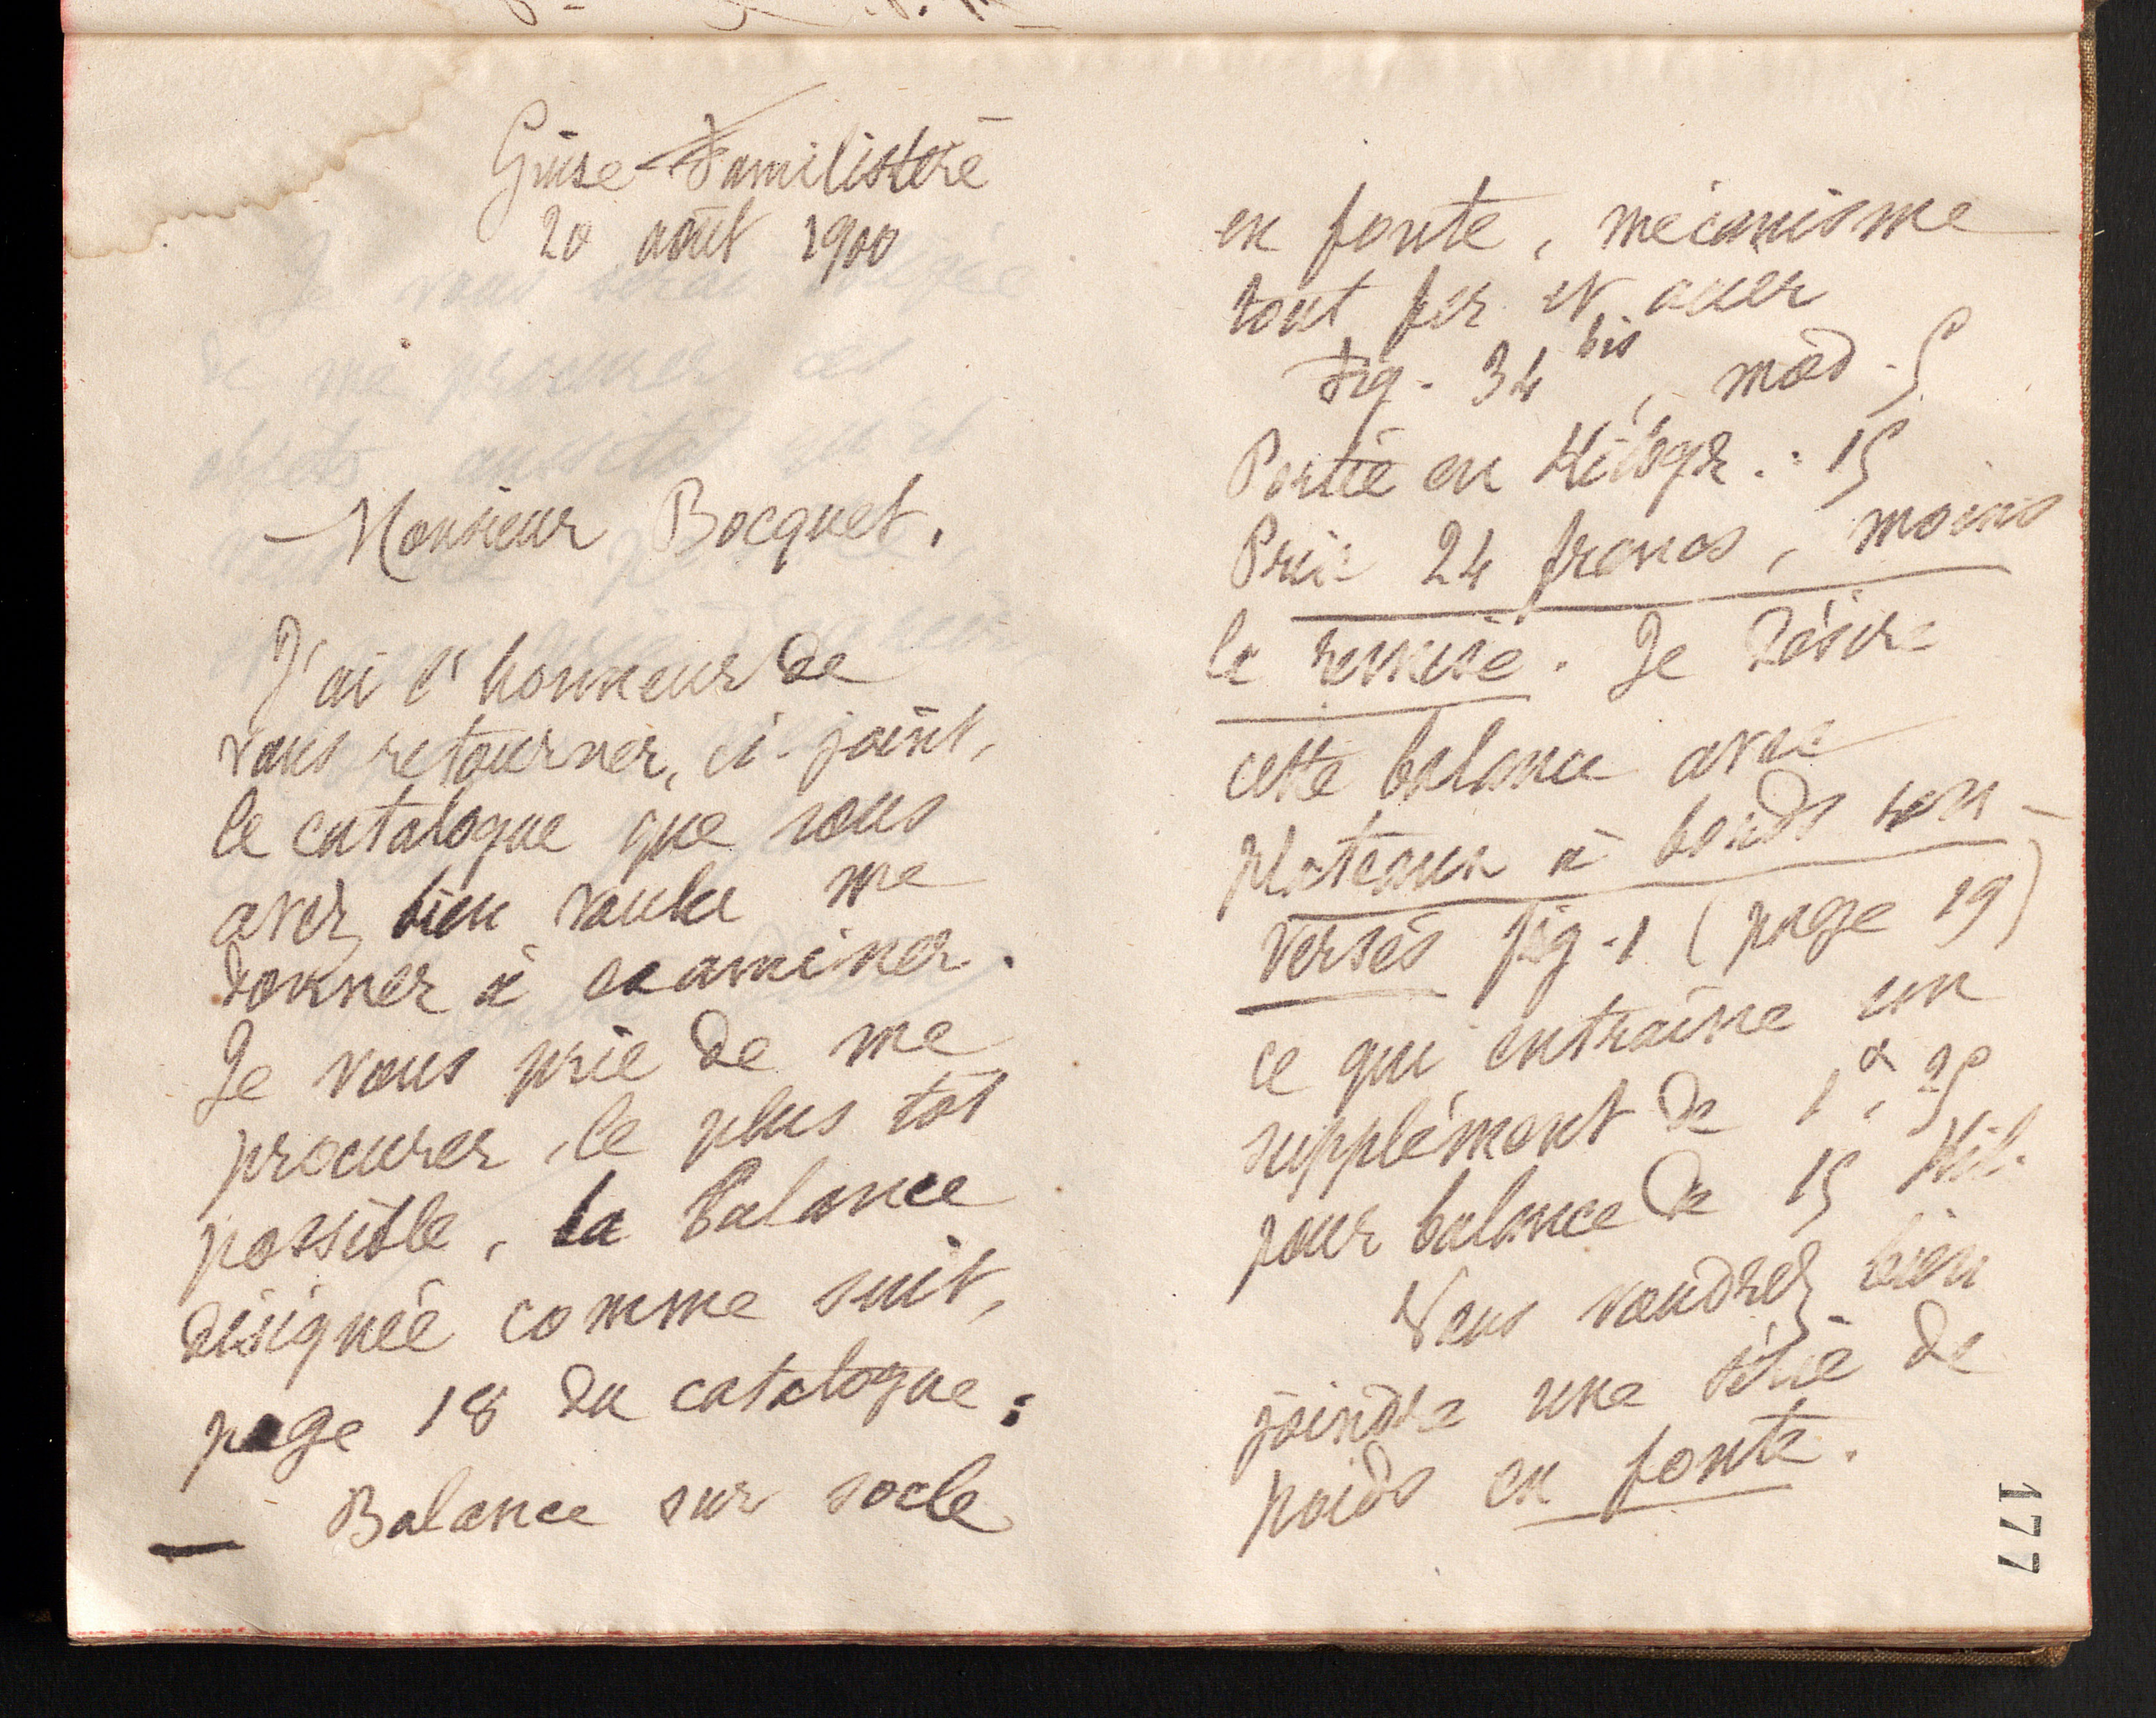 Guise-Familistère
20 août 1900
Monsieur Bocquet,
J'ai l'honneur de
vous retourner, ci-joint,
le catalogue que vous
avez bien voulu me
donner à examiner.
Je vous prie de me
procurer, le plus tôt
possible, la balance
désignée comme suit,
page 18 du catalogue :
— Balance sur socle
en fonte, mécanisme
tout fer et acier
Fig. 34 bis, mod. 5
Portée en Kilogr. : 15
Prix 24 francs, moins
la remise. Je désire
cette balance avec
plateaux à bords ren-
versés fig. 1 (page 19)
ce qui entraîne un
supplément de 1f,25
pour balance de 15 Kil.
Vous voudrez bien
joindre une série de
poids en fonte.
177